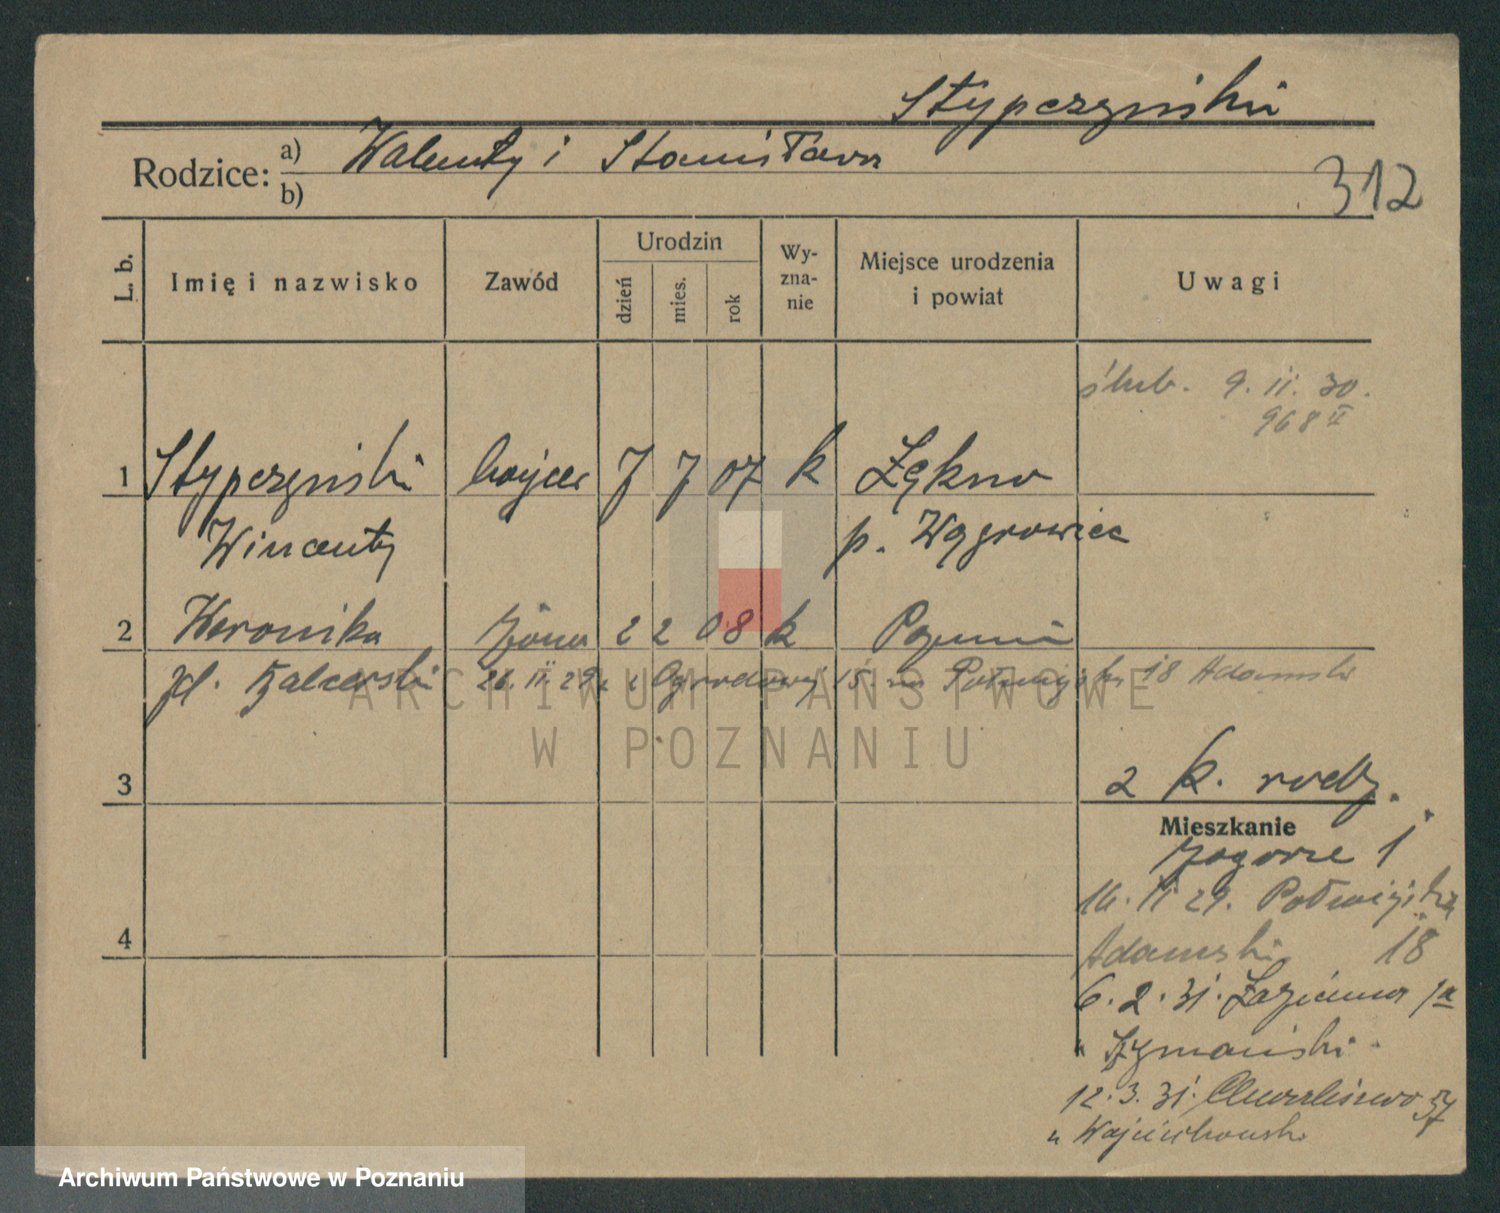 Stypczyński
Rodzice: a) Walenty i Stanisława
b)
312
L. b. Imię i nazwisko Zawód Urodzin dzień mies. rok Wy-zna-nie Miejsce urodzenia i powiat Uwagi
ślub. 9. II. 30.
968 II
1 Stypczyński 7 7 07 k Łękno
Wincenty p. Wągrowiec
2 Weronika żona 2 2 08 k Poznań
Balcerski 26. II. 29. Ogrodowej 15 18 Adamski
ARCHIWUM PAŃSTWOWE
W POZNANIU
3
2 k. rodz.
Mieszkanie
Zagórze 1
16. II 29. Połwiejska
4
Adamski 18
6. 2. 31. Łazienna 1a
u Szymański
12. 3. 31. Chwaliszewo 57
u Wojciechowski
Archiwum Państwowe w Poznaniu